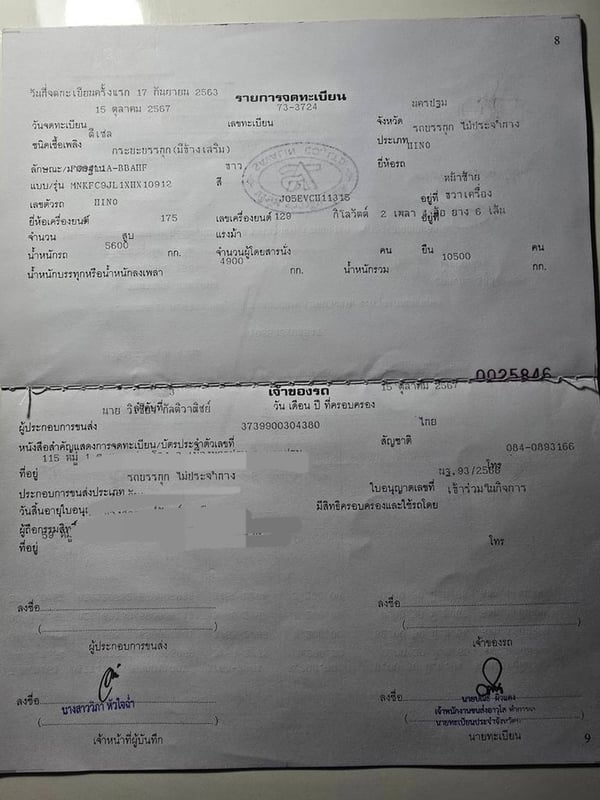 8
วันที่จดทะเบียนครั้งแรก 17 กันยายน 2563
รายการจดทะเบียน
15 ตุลาคม 2567 73-3724 นครปฐม
วันจดทะเบียน เลขทะเบียน จังหวัด
ดีเซล รถบรรทุก ไม่ประจำทาง
ชนิดเชื้อเพลิง ประเภท
กระบะบรรทุก(มีข้างเสริม) HINO
ลักษณะ/ ขาว ยี่ห้อรถ
แบบ/รุ่น MNKFC9JL1XHX10912 สี หน้าซ้าย
เลขตัวรถ HINO J05EVCH11315 อยู่ที่ ขวาเครื่อง
ยี่ห้อเครื่องยนต์ 175 เลขเครื่องยนต์ 129 กิโลวัตต์ 2 เพลา ยาง 6 เส้น
จำนวน สูบ แรงม้า
น้ำหนักรถ 5600 กก. จำนวนผู้โดยสารนั่ง คน ยืน คน
4900 10500
น้ำหนักบรรทุกหรือน้ำหนักลงเพลา กก. น้ำหนักรวม กก.
0025846
เจ้าของรถ
15 ตุลาคม 2567
นาย วัน เดือน ปี ที่ครอบครอง
ผู้ประกอบการขนส่ง 3739900304380 ไทย
หนังสือสำคัญแสดงการจดทะเบียน/บัตรประจำตัวเลขที่ สัญชาติ 084-0893166
115 หมู่
ที่อยู่ โทร
รถบรรทุก ไม่ประจำทาง
ประกอบการขนส่งประเภท ใบอนุญาตเลขที่ เจ้าร่วมในกิจการ
วันสิ้นอายุใบอนุ มีสิทธิครอบครองและใช้รถโดย
ผู้ถือกรรมสิทธิ์
59 หมู่
ที่อยู่ โทร
ลงชื่อ ลงชื่อ
( ) ( )
ผู้ประกอบการขนส่ง เจ้าของรถ
ลงชื่อ ลงชื่อ
นางสาววิภา หัวใจฉ่ำ
( ) ( )
เจ้าหน้าที่ผู้บันทึก นายทะเบียน
9